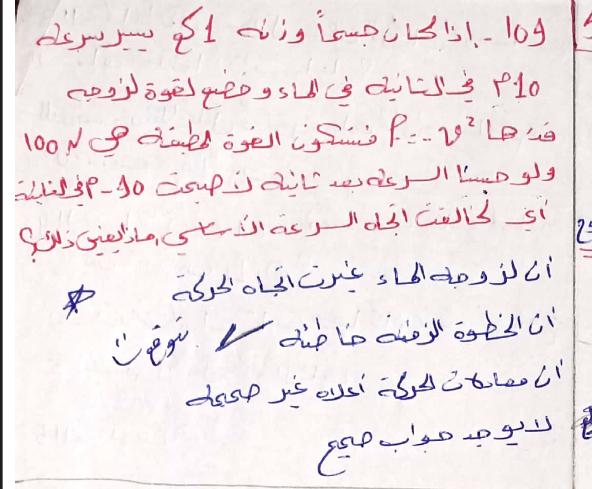 109 - إذا كان جسماً وزنه 1 كغ يسير بسرعة
10 م في الثانية في الماء و خضع لقوة لزوجة
قدرها v² فستكون القوة المطبقة هي 100
ولو حسبنا السرعة بعد ثانية لأصبحت 90- م في الثانية
أي تخالفت اتجاه السرعة الأساسي، ماذا يعني ذلك؟
أن لزوجة الماء غيرت اتجاه الحركة
أن الخطوة الزمنية خاطئة ✓
أن معادلات الحركة أعلاه غير صحيحة
لا يوجد جواب صحيح